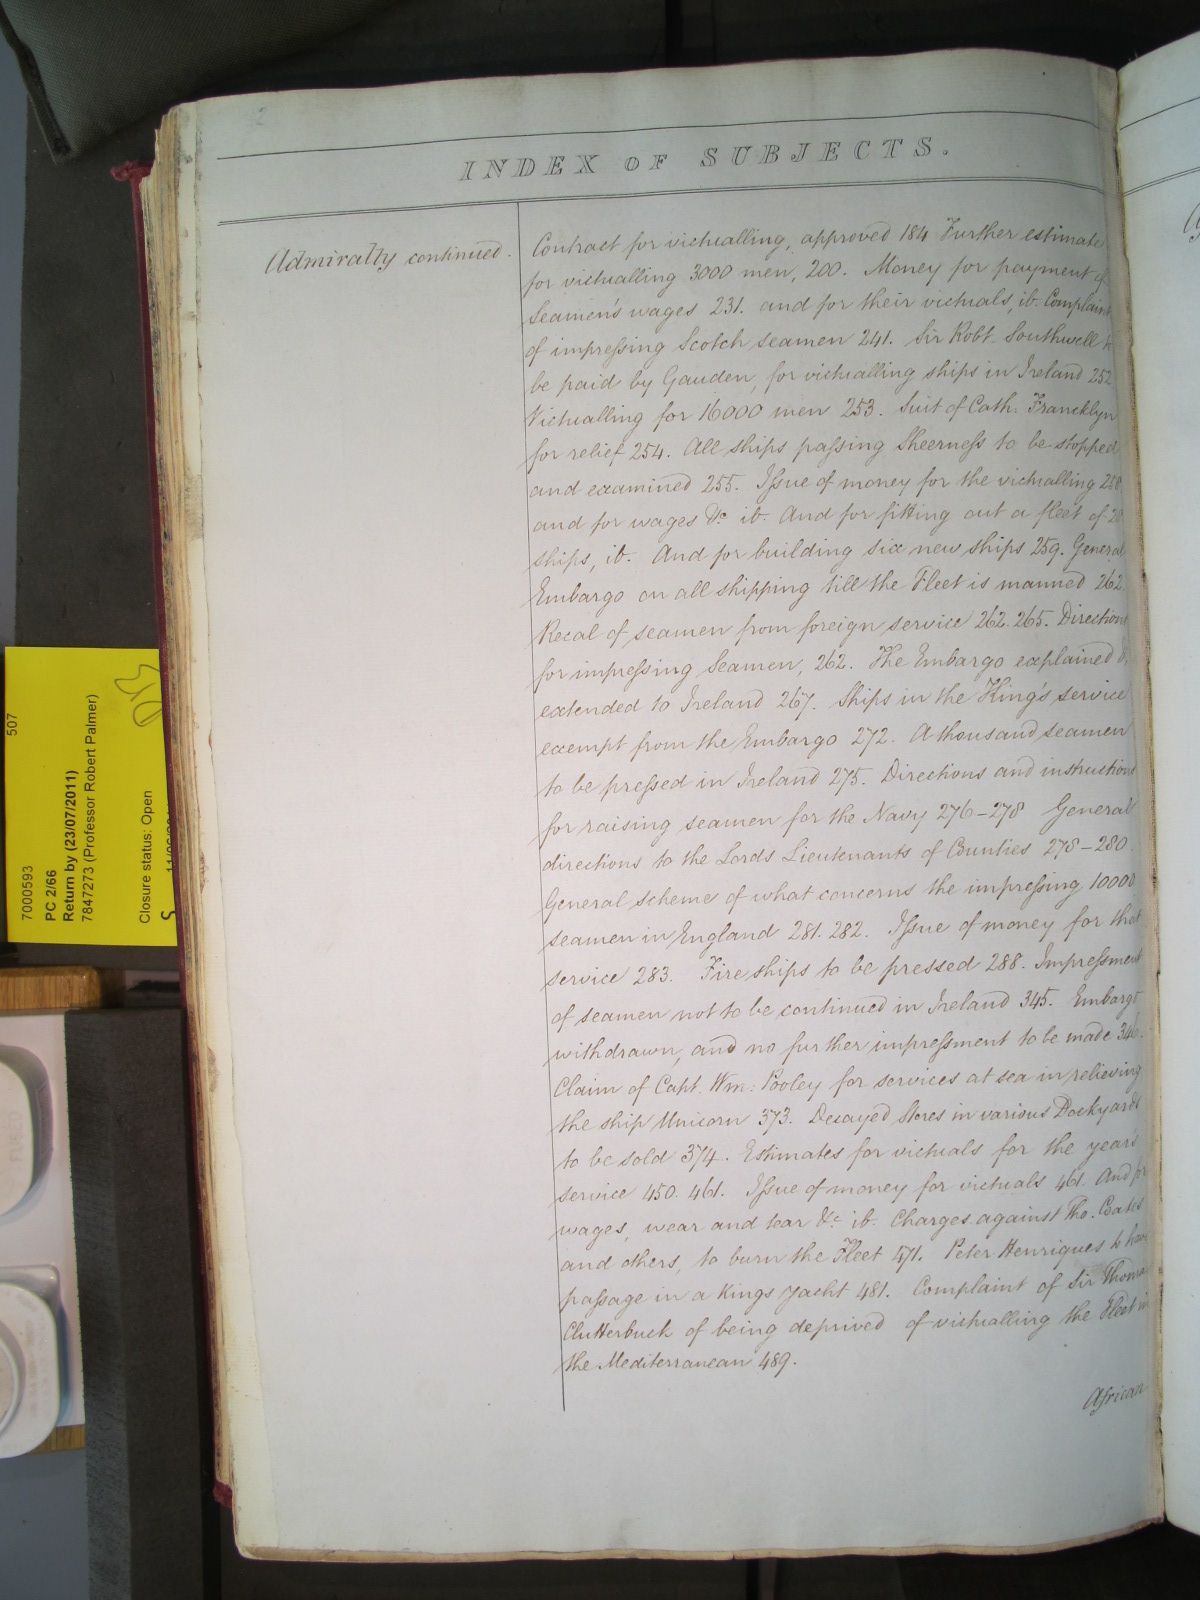 2
INDEX OF SUBJECTS.
Admiralty continued.
Contract for victualling, approved 184 Further estimates
for victualling 3000 men, 200. Money for payment of
Seamen's wages 231. and for their victuals, ib. Complaint
of impressing Scotch seamen 241. Sir Robt. Southwell to
be paid by Gauden, for victualling ships in Ireland 252
Victualling for 16000 men 253. Suit of Cath: Francklyn
for relief 254. All ships passing Sheerness to be stopped
and examined 255. Issue of money for the victualling 258
and for wages &c ib. And for fitting out a fleet of 20
ships, ib. And for building six new ships 259. General
Embargo on all shipping till the Fleet is manned 262.
Recal of seamen from foreign service 262. 265. Directions
for impressing Seamen, 262. The Embargo explained &
extended to Ireland 267. Ships in the King's service
exempt from the Embargo 272. A thousand seamen
to be pressed in Ireland 275. Directions and instructions
for raising seamen for the Navy 276-278 General
directions to the Lords Lieutenants of Counties 278-280.
General scheme of what concerns the impressing 10000
seamen in England 281. 282. Issue of money for that
service 283. Fire ships to be pressed 288. Impressment
of seamen not to be continued in Ireland 345. Embargo
withdrawn, and no further impressment to be made 346.
Claim of Capt. Wm: Pooley for services at sea in relieving
the ship Unicorn 373. Decayed Stores in various Dockyards
to be sold 374. Estimates for victuals for the year's
service 450. 461. Issue of money for victuals 461. And for
wages, wear and tear &c ib. Charges against Tho. Coates
and others, to burn the Fleet 471. Peter Henriques to have
passage in a Kings Yacht 481. Complaint of Sir Thomas
Clutterbuck of being deprived of victualling the Fleet in
the Mediterranean 489.
African
507
7000593
PC 2/66
Return by (23/07/2011)
7847273 (Professor Robert Palmer)
Closure status: Open
S